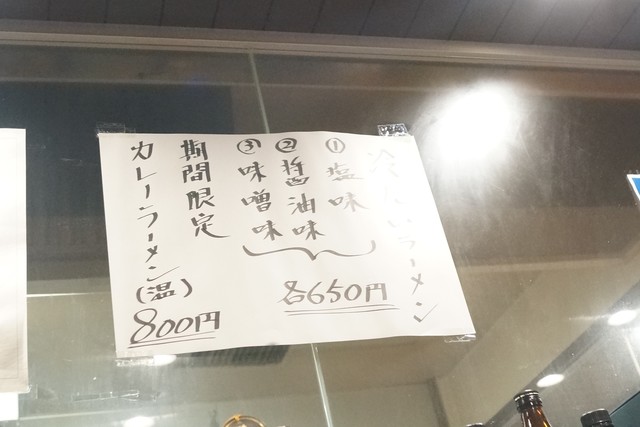 冷たいラーメン
①塩味
②醤油味
③味噌味
各650円
期間限定
カレーラーメン(温)
800円